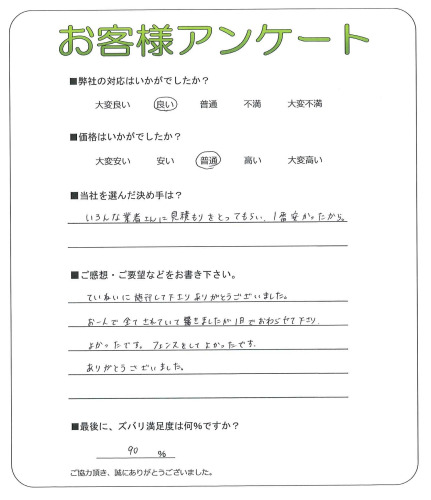 お客様アンケート
■弊社の対応はいかがでしたか？
大変良い 良い 普通 不満 大変不満
■価格はいかがでしたか？
大変安い 安い 普通 高い 大変高い
■当社を選んだ決め手は？
いろんな業者さんに見積もりをとってもらい、1番安かったから。
■ご感想・ご要望などをお書き下さい。
ていねいに施行して下さりありがとうございました。
お一人で全てされていて驚きましたが1日でおわらせて下さり、
よかったです。フェンスをしてよかったです。
ありがとうございました。
■最後に、ズバリ満足度は何%ですか？
90 %
ご協力頂き、誠にありがとうございました。